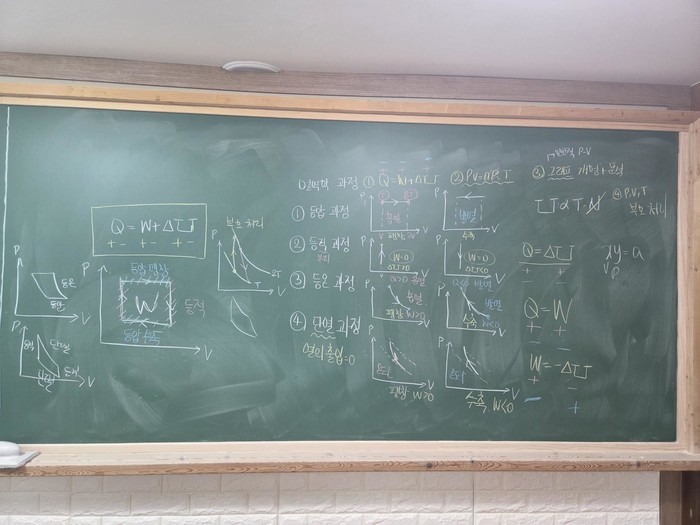 Q = W + ΔU
+ -  + -  + -
P
등온
V
P
단열
V
P
등압 팽창
W
등적
등압 수축
V
부호 처리
P
2T
T
V
열역학 과정 ① Q = W + ΔU ② PV = nRT ③ 그래프 개형 + 분석
P-V
① 등압 과정
② 등적 과정
③ 등온 과정
④ 단열 과정
열의 출입=0
P
팽창
V
P
수축
V
P
W=0
V
P
W=0
ΔU<0
V
P
팽창 W>0
V
P
수축 W<0
V
P
팽창 W>0
V
P
수축 W<0
V
U ∝ T·N
④ P, V, T
부호 처리
Q = ΔU
+ +
- -
xy = a
V P
Q = W
+ +
- -
W = -ΔU
+ -
- +